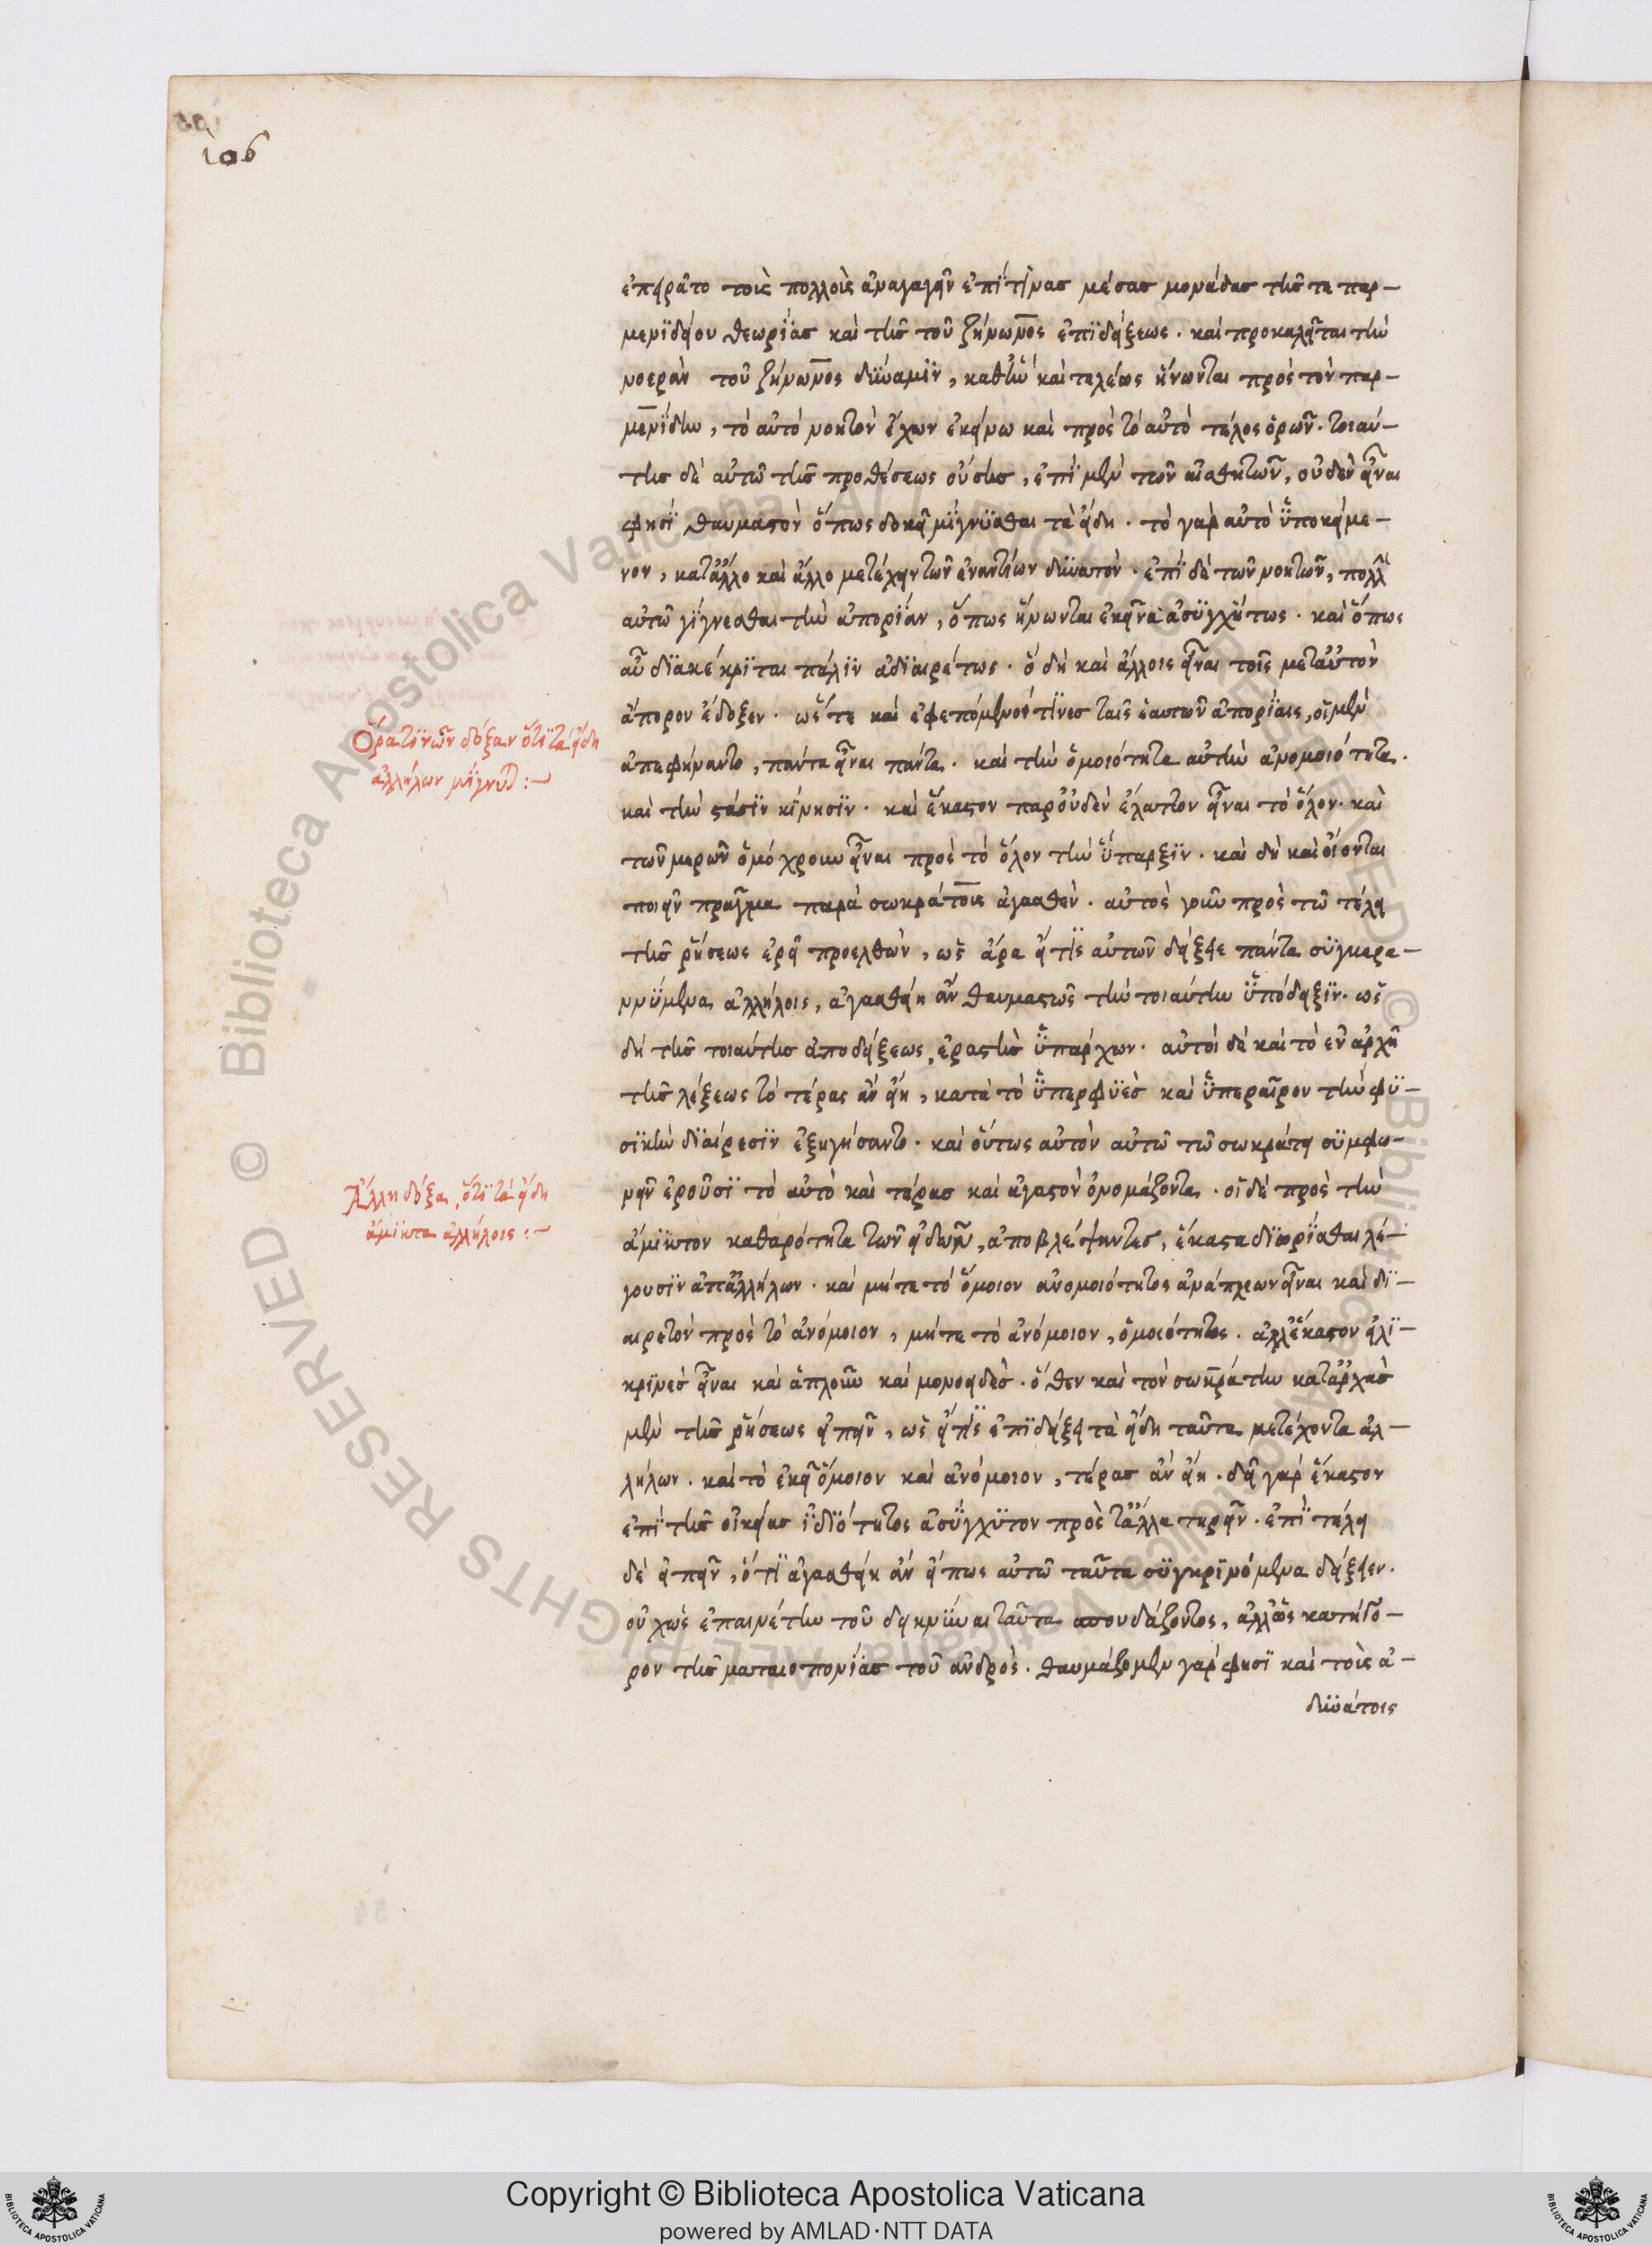 106
ἐπειρᾶτο τοῖς πολλοῖς ἀναγαγεῖν ἐπί τινας μέσας μονάδας τῆς τε παρ-
μενιδείου θεωρίας καὶ τῆς τοῦ ζήνωνος ἐπιδείξεως. καὶ προκαλεῖται τὴν
νοερὰν τοῦ ζήνωνος δύναμιν, καθ' ἣν καὶ τελέως ἥνωνται πρὸς τὸν παρ-
μενίδην, τὸ αὐτὸ νοητὸν ἔχων ἐκείνω καὶ πρὸς τὸ αὐτὸ τέλος ὁρῶν. τοιαύ-
της δὲ αὐτῶ τῆς προθέσεως οὔσης, ἐπὶ μὲν τῶν αἰσθητῶν, οὐδὲν εἶναι
φησὶ θαυμαστὸν ὅπως δοκεῖ μίγνυσθαι τὰ εἴδη. τὸ γὰρ αὐτὸ ὑποκείμε-
νον, κατ' ἄλλο καὶ ἄλλο μετέχειν τῶν ἐναντίων δυνατόν. ἐπὶ δὲ τῶν νοητῶν, πολλὴ
αὐτῶ γίγνεσθαι τὴν ἀπορίαν, ὅπως ἥνωνται ἐκεῖνα ἀσυγχύτως. καὶ ὅπως
αὖ διακέκριται πάλιν ἀδιαιρέτως. ὃ δὴ καὶ ἄλλοις εἶναι τοῖς μετ' αὐτὸν
ἄπορον ἔδοξεν. ὥστε καὶ ἐφεπόμενοί τινες ταῖς ἑαυτῶν ἀπορίαις, οἱ μὲν
Ὅρα τινῶν δόξαν ὅτι τὰ εἴδη
ἀλλήλων μίγνυται:-
ἀπεφήναντο, πάντα εἶναι πάντα. καὶ τὴν ὁμοιότητα αὐτὴν ἀνομοιότητα.
καὶ τὴν στάσιν κίνησιν. καὶ ἕκαστον παρ' οὐδὲν ἔλαττον εἶναι τὸ ὅλον. καὶ
τῶν μερῶν ὁμόχρουν εἶναι πρὸς τὸ ὅλον τὴν ὕπαρξιν. καὶ δὴ καὶ οἴονται
ποιεῖν πρᾶγμα παρὰ σωκράτους ἀγασθέν. αὐτὸς γοῦν πρὸς τῶ τέλει
τῆς ῥήσεως ἐρεῖ προελθών, ὡς ἄρα εἴ τις αὐτῶν δείξειε πάντα συγκερα-
ννύμενα ἀλλήλοις, ἀγασθείη ἂν θαυμαστῶς τὴν τοιαύτην ὑπόδειξιν. ὡς
δὴ τῆς τοιαύτης ἀποδείξεως, ἐραστὴς ὑπάρχων. αὐτοὶ δὲ καὶ τὸ ἐν ἀρχῆ
τῆς λέξεως τὸ τέρας ἂν εἴη, κατὰ τὸ ὑπερφυὲς καὶ ὑπεραῖρον τὴν φυ-
σικὴν διαίρεσιν ἐξηγήσαντο. καὶ οὕτως αὐτὸν αὐτῶ τῶ σωκράτει συμφω-
νεῖν ἐροῦσι τὸ αὐτὸ καὶ τέρας καὶ ἀγαστὸν ὀνομάζοντα. οἱ δὲ πρὸς τὴν
Ἄλλη δόξα, ὅτι τὰ εἴδη
ἄμικτα ἀλλήλοις:-
ἄμικτον καθαρότητα τῶν εἰδῶν, ἀποβλέψαντες, ἕκαστα διωρίσθαι λέ-
γουσιν ἀπ' ἀλλήλων. καὶ μήτε τὸ ὅμοιον ἀνομοιότητος ἀνάπλεων εἶναι καὶ δι-
αιρετὸν πρὸς τὸ ἀνόμοιον, μήτε τὸ ἀνόμοιον, ὁμοιότητος. ἀλλ' ἕκαστον εἰλι-
κρινὲς εἶναι καὶ ἁπλοῦν καὶ μονοειδές. ὅθεν καὶ τὸν σωκράτην κατ' ἀρχὰς
μὲν τῆς ῥήσεως εἰπεῖν, ὡς εἴ τις ἐπιδείξει τὰ εἴδη ταῦτα μετέχοντα ἀλ-
λήλων. καὶ τὸ ἐκεῖ ὅμοιον καὶ ἀνόμοιον, τέρας ἂν εἴη. δεῖ γὰρ ἕκαστον
ἐπὶ τῆς οἰκείας ἰδιότητος ἀσύγχυτον πρὸς τἆλλα τηρεῖν. ἐπὶ τέλει
δὲ εἰπεῖν, ὅτι ἀγασθείη ἂν εἴ πως αὐτῶ ταῦτα συγκρινόμενα δείξειεν.
οὐχ ὡς ἐπαινέτην τοῦ δεικνύναι ταῦτα σπουδάζοντος, ἀλλ' ὡς κατήγο-
ρον τῆς ματαιοπονίας τοῦ ἀνδρός. θαυμάζομεν γὰρ φησὶ καὶ τοῖς ἀ-
δυνάτοις
Copyright © Biblioteca Apostolica Vaticana
powered by AMLAD·NTT DATA